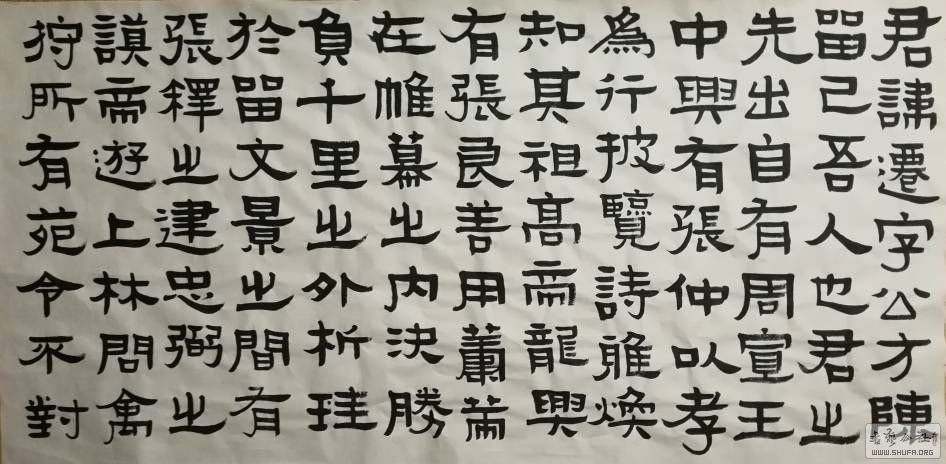 君諱遷字公方陳
留己吾人也君之
先出自有周宣王
中興有張仲以孝
為行披覽詩雅煥
知其祖高帝龍興
有張良善用籌策
在帷幕之內決勝
負千里之外析珪
於留文景之間有
張釋之建忠弼之
謨帝遊上林問禽
狩所有苑令不對
WWW.SHUFA.ORG